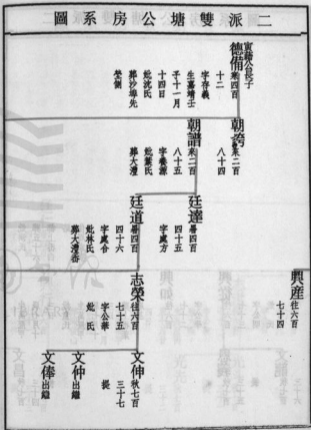 二派雙塘公房系圖
寅籍公長子
德備 來四百
十二
字存義
生嘉靖壬
子十一月
十四日
妣沈氏
葬沙埠先
塋側
朝誇 來二百
八十四
朝譜 來二百
八十五
字養源
妣葉氏
葬大澧
廷達 暑四百
四十五
字處方
廷道 暑四百
四十六
字處合
妣林氏
葬大澧岙
興産 往六百
七十四
志榮 往六百
七十五
字公華
妣 氏
文伸 秋七百
三十七
提
文仲 出繼
文俸 出繼